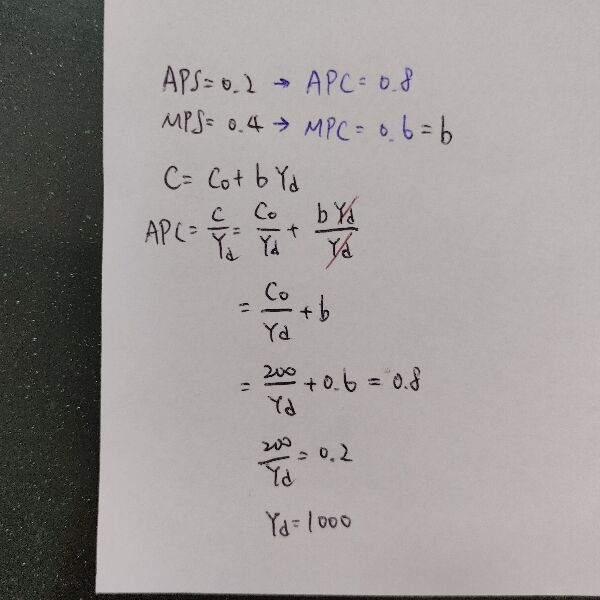 APS = 0.2 → APC = 0.8
MPS = 0.4 → MPC = 0.6 = b
C = C₀ + b Yd
APC = C/Yd = C₀/Yd + b Yd/Yd
= C₀/Yd + b
= 200/Yd + 0.6 = 0.8
200/Yd = 0.2
Yd = 1000